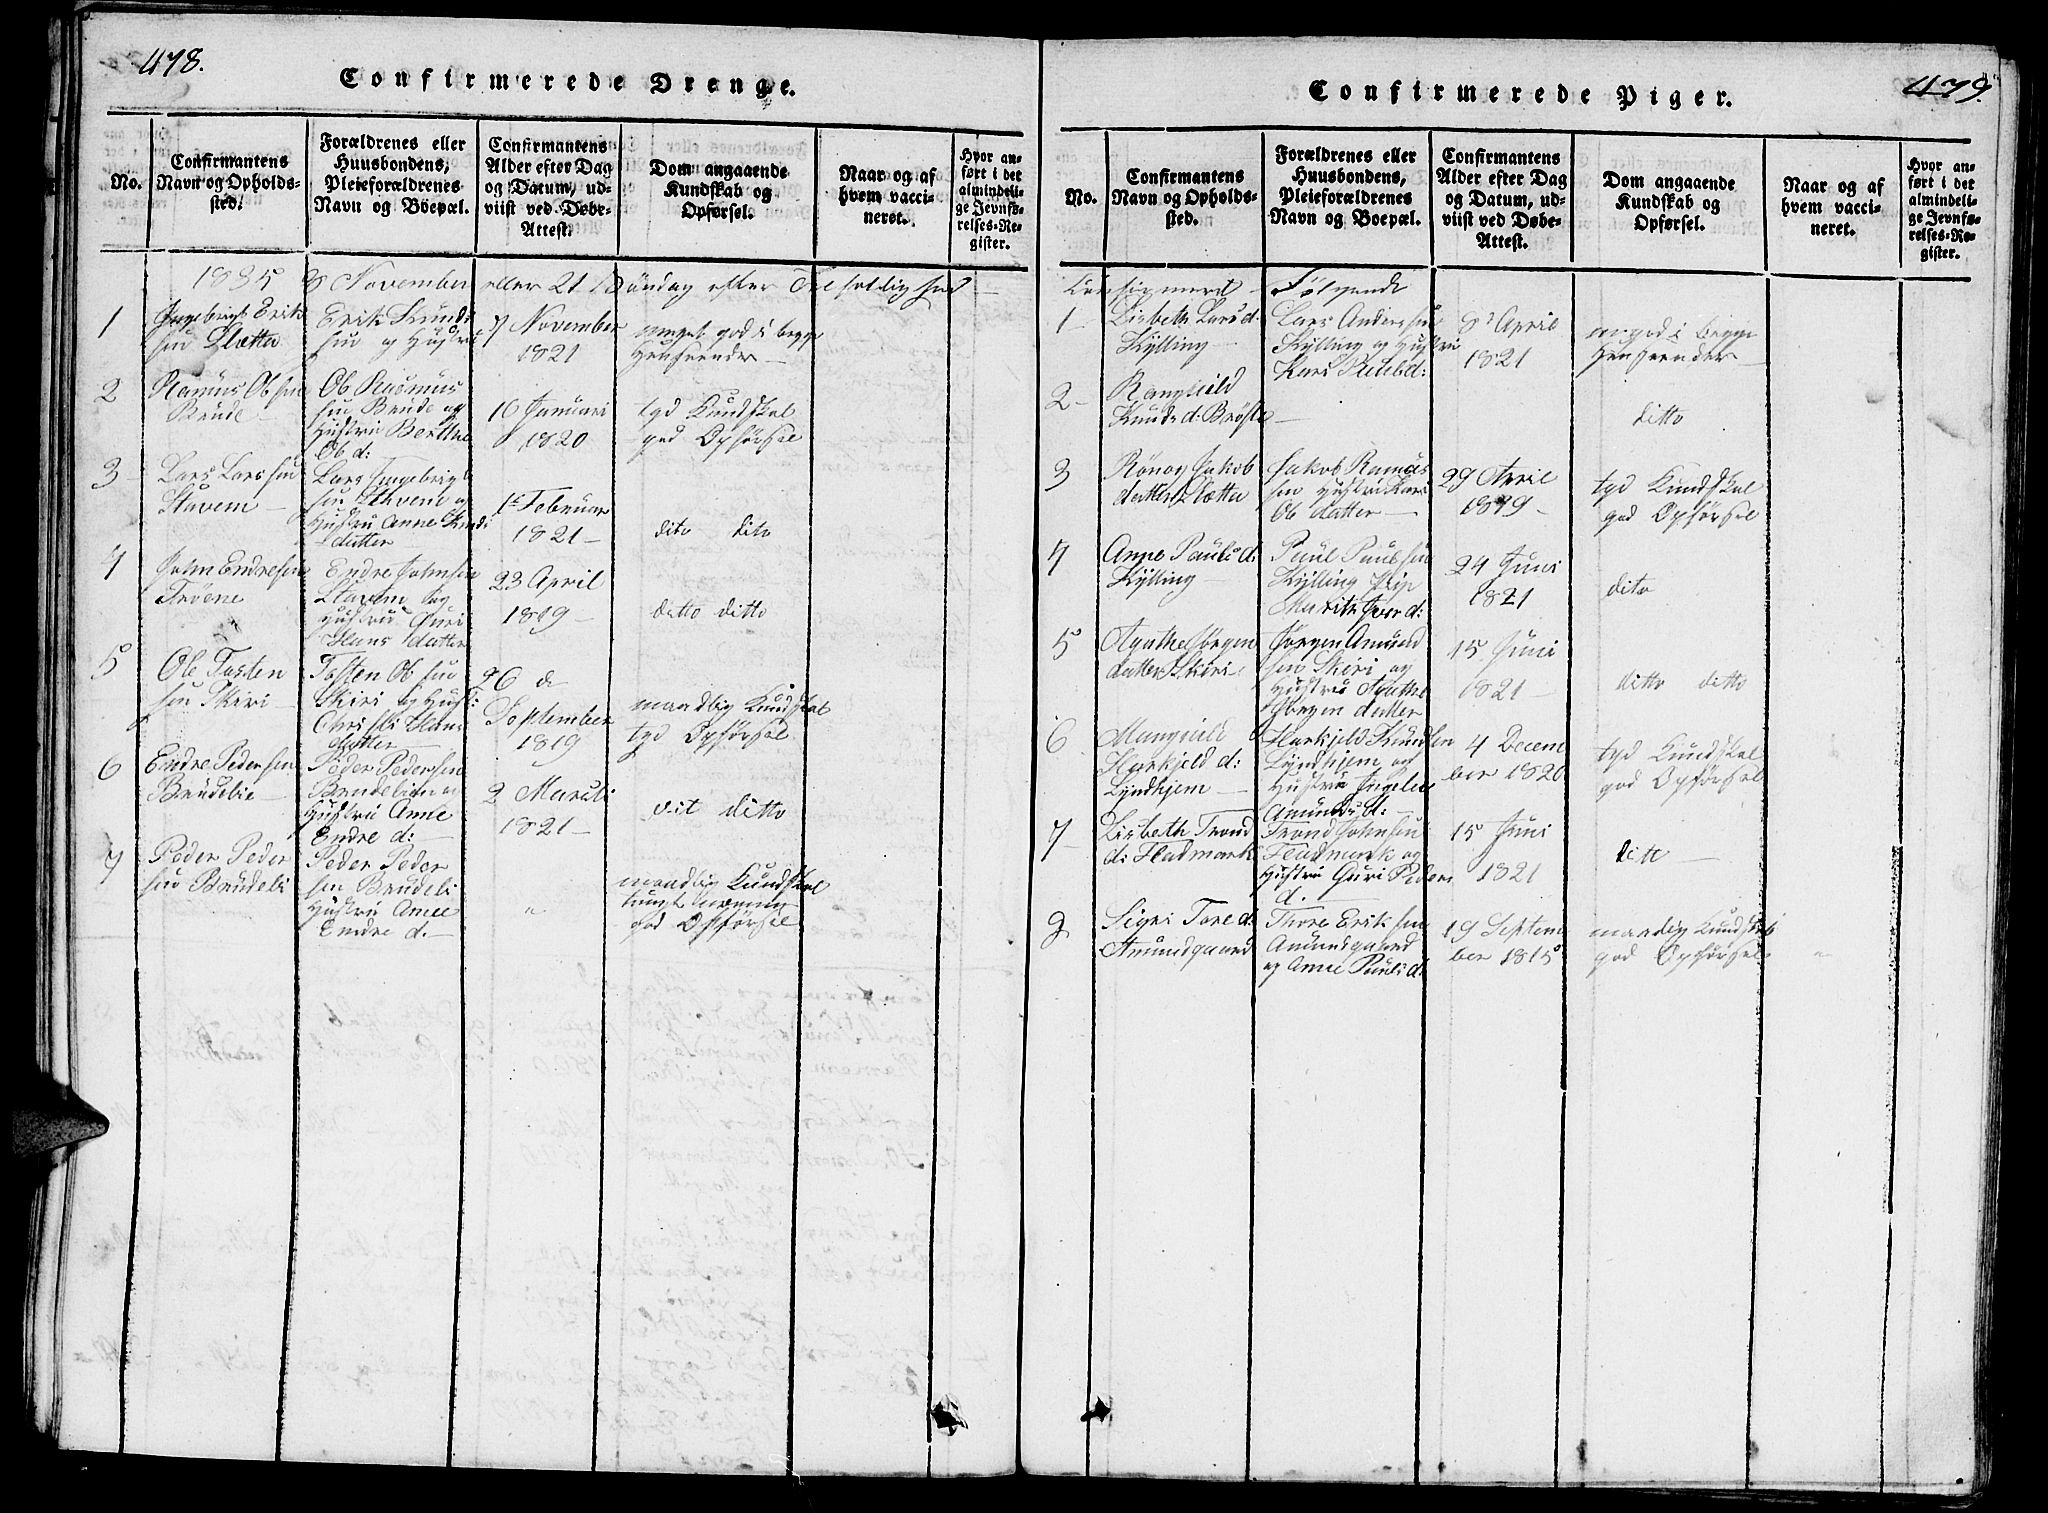 478.
Confirmerede Drenge.
No.
Confirmantens
Navn og Opholds-
sted.
Forældrenes eller
Huusbondens,
Pleieforældrenes
Navn og Boepæl.
Confirmantens
Alder efter Dag
og Datum, ud-
viist ved Døbe-
Attest.
Dom angaaende
Kundskab og
Opførsel.
Naar og af
hvem vacci-
neret.
Hvor an-
ført i det
almindeli-
ge Jevnfø-
relses-Re-
gister.
1835 8 November eller 21 Søndag efter
1
Ingebrigt Erik
sen Slætta
Erik Knud
sen og Hustri
7 November
1821
meget god i begge
Henseender
2
Rasmus Ole sen
Brude
Ole Rasmus
sen Brude og
Hustru Berthe
Ole d:
16 Januari
1820
tyd Kundskab
god Opførsel
3
Lars Lars sen
Stavem
Lars Ingebrigt
sen Stavem og
Hustru Anne Knuds
datter
1e Februar
1821
dito dito
4
John Endresen
Trøene
Endre John sen
Stavem og
Hustru Guri
Hans datter
23 April
1819
ditto ditto
5
Ole Tosten
sen Skiri
Tosten Ole sen
Skiri og Hust:
Christi Hans
datter
26 de
September
1819
maadlig Kundskab
tyd Opførsel
6
Endre Peder sen
Brudelie
Peder Pedersen
Brudelien og
Hustru Anne
Endre d:
2 Marsti
1821
dit ditto
7
Peder Peder
sen Brudeli
Peder Peder
sen Brudeli
Hustru Anne
Endre d.
"
maadlig Kundskab
tungt nemme
god Opførsel
479.
Confirmerede Piger.
No.
Confirmantens
Navn og Opholds-
sted.
Forældrenes eller
Huusbondens,
Pleieforældrenes
Navn og Boepæl.
Confirmantens
Alder efter Dag
og Datum, ud-
viist ved Døbe-
Attest.
Dom angaaende
Kundskab og
Opførsel.
Naar og af
hvem vacci-
neret.
Hvor an-
ført i det
almindeli-
ge Jevnfø-
relses-Re-
gister.
Følgende
1
Lisbeth Lars d.
Kylling
Lars Anders sen
Kylling og Hustri
Kari Pauls d:
8 April
1821
m god i begge
Henseender
2
Rangnild
Knuds d. Brøste
ditto
3
Rønog Jakob
datter Slætta
Jakob Rasmus
sen Hustri Kari
Ole datter
29 April
1819
tyd Kundskab
god Opførsel
4
Anne Pauls d:
Kylling
Paul Paulsen
Kylling
Marith Iver d:
24 Juni
1821
dito
5
Agathe Jørgen
datter Skiri
Jørgen Amund
sen Skiri og
Hustru Agathe
Jørgen datter
15 Juni
1821
ditto ditto
6
Mangnild
Harkjeld d:
Lyndhjem
Harkjeld Knudsen
Lyndhjem og
Hustru Ingeleu
Amunds d:
4 Decem
ber 1820
tyd Kundskab
god Opførsel
7
Lisbeth Trond
d: Fladmark
Trond John sen
Fladmark og
Hustru Guri Peders
d.
15 Juni
1821
ditto
8
Signi Tore d.
Amundgaard
Thore Erik sen
Amundgaard
og Anne Pauls d.
19 Septem
ber 1815
maadlig Kundskab
god Opførsel
"